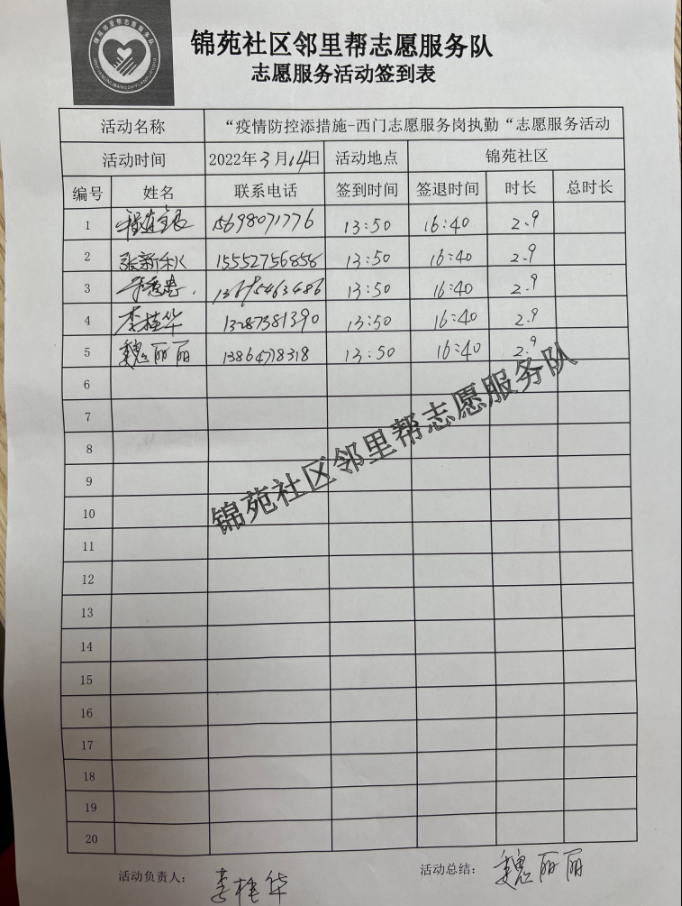 锦苑社区邻里帮志愿服务队
志愿服务活动签到表
活动名称 “疫情防控添措施-西门志愿服务岗执勤“志愿服务活动
活动时间 2022年3月14日 活动地点 锦苑社区
编号 姓名 联系电话 签到时间 签退时间 时长 总时长
1 15698071776 13:50 16:40 2.9
2 张新秋 15552756856 13:50 16:40 2.9
3 13695463486 13:50 16:40 2.9
4 李桂华 13287381390 13:50 16:40 2.9
5 魏丽丽 13864778318 13:50 16:40 2.9
6
7
8
9
10
11
12
13
14
15
16
17
18
19
20
锦苑社区邻里帮志愿服务队
活动负责人: 李桂华 活动总结: 魏丽丽